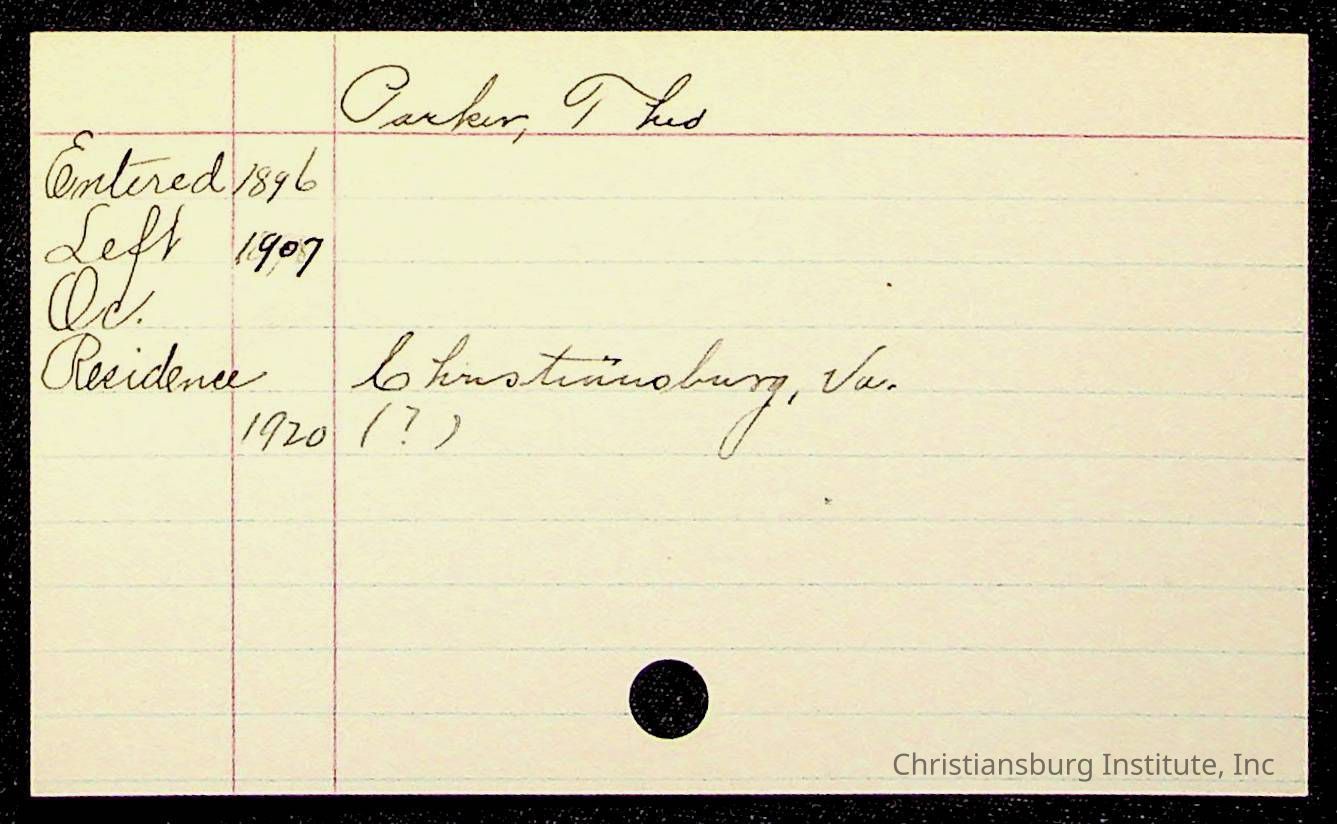 Parker, Theo
Entered 1896
Left 1907
Oc.
Residence Christiansburg, Va.
1920 (?)
Christiansburg Institute, Inc